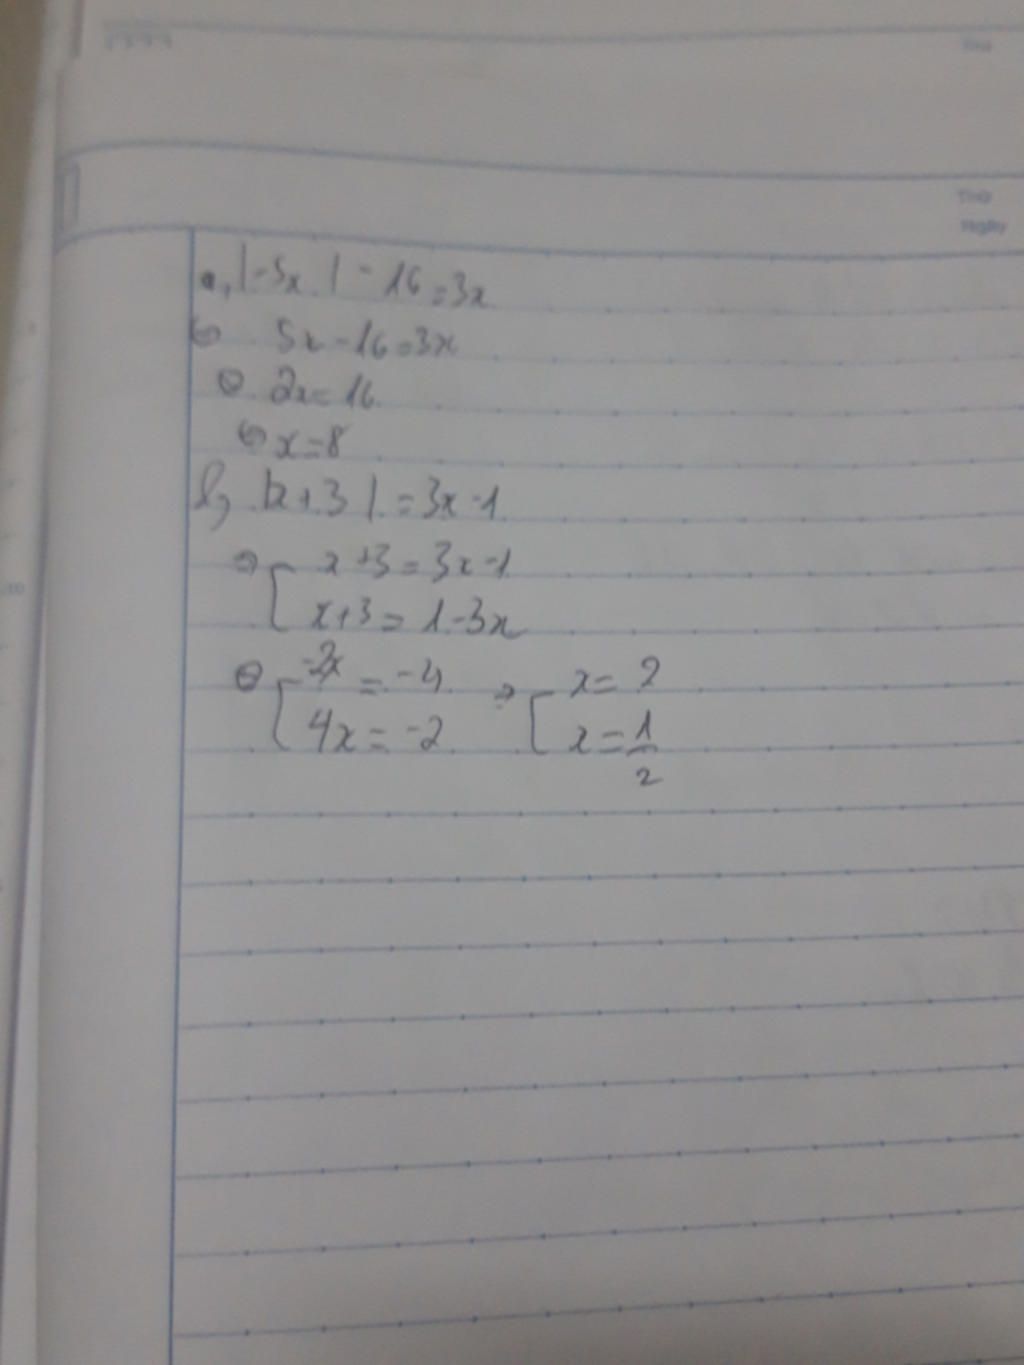 a, |-5x| - 16 = 3x
⇔ 5x - 16 = 3x
⇔ 2x = 16
⇔ x = 8
b, |x + 3| = 3x - 1
⇒ [ x + 3 = 3x - 1
x + 3 = 1 - 3x
⇔ [ -2x = -4 ⇒ [ x = 2
4x = -2 x = 1/2